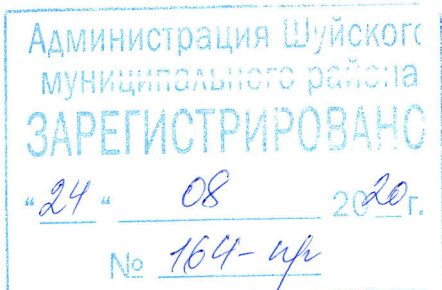 Администрация Шуйског
муниципального района
ЗАРЕГИСТРИРОВАНО
"24" 08 2020г.
№ 164-пр